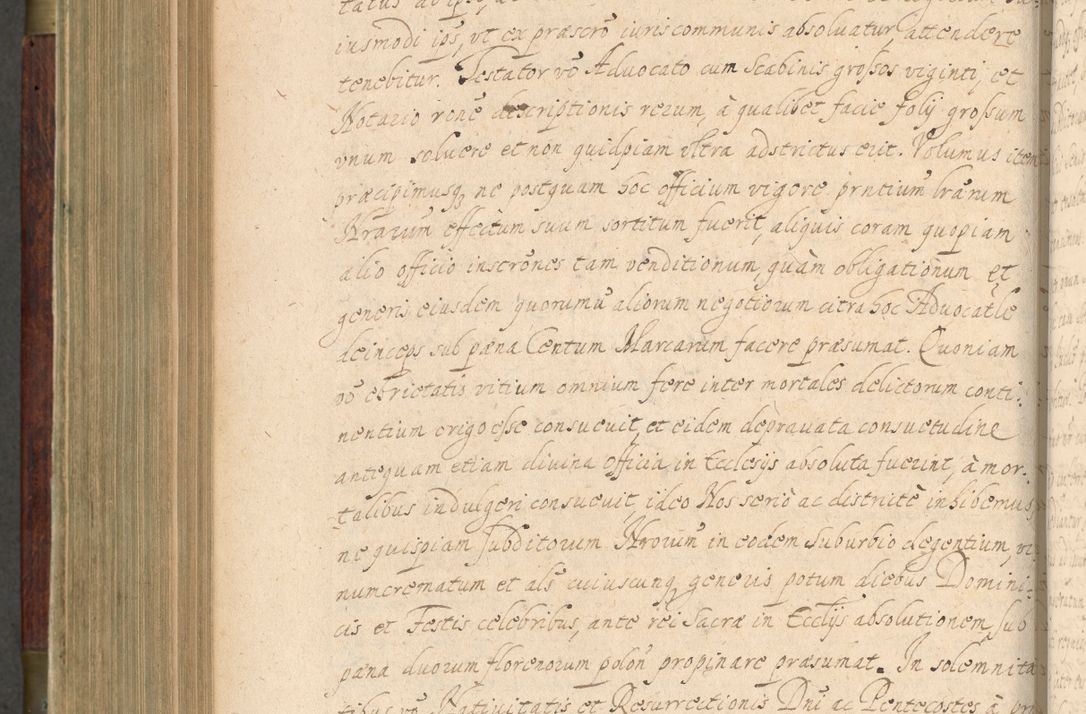 iusmodi ips, vt ex præscrõ iuris communis absoluatur attendere
tenebitur. Testator vo Aduocato cum Scabinis grossos viginti, et
Notario rone descriptionis rerum, à qualibet facie folij grossum
vnum soluere et non quidpiam vltra adstrictus erit. Volumus item
præcipimusq, ne postquam hoc officium vigore prntium lrarum
Nrarum effectum suum sortitum fuerit, aliquis coram quopiam
alio officio inscrones tam venditionum, quàm obligationum et
generis eiusdem quorumu aliorum negotiorum citra hoc Aduocatle
deinceps sub pæna Centum Marcarum facere præsumat. Quoniam
vo ebrietatis vitium omnium fere inter mortales delictorum conti:
nentium erigo esse consueuit, et eidem deprauata consuetudine
antequam etiam diuina officia in Ecclesijs absoluta fuerint, à mor:
talibus indulgeri consueuit, ideo Nos seriò ac districtè inhibemus,
ne quispiam subditorum Nrorum in eodem suburbio degentium,
numcrematum et als cuiuscunq generis potum diebus Domini:
cis et Festis celebribus, ante rei Sacræ in Ecclijs absolutionem, sub
pæna duorum florenorum polon propinare præsumat. In solemnita
tibus vo Natiuitatis et Resurrectionis Dni ac Pentecostes à